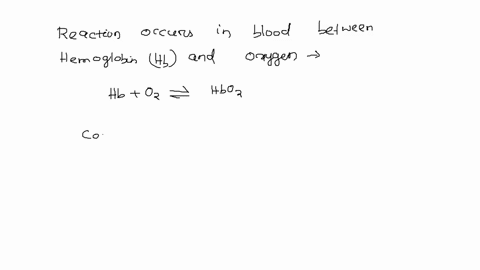 Reaction occurs in blood between
Hemoglobin (Hb) and oxygen →
Hb + O₂ ⇌ HbO₂
Co